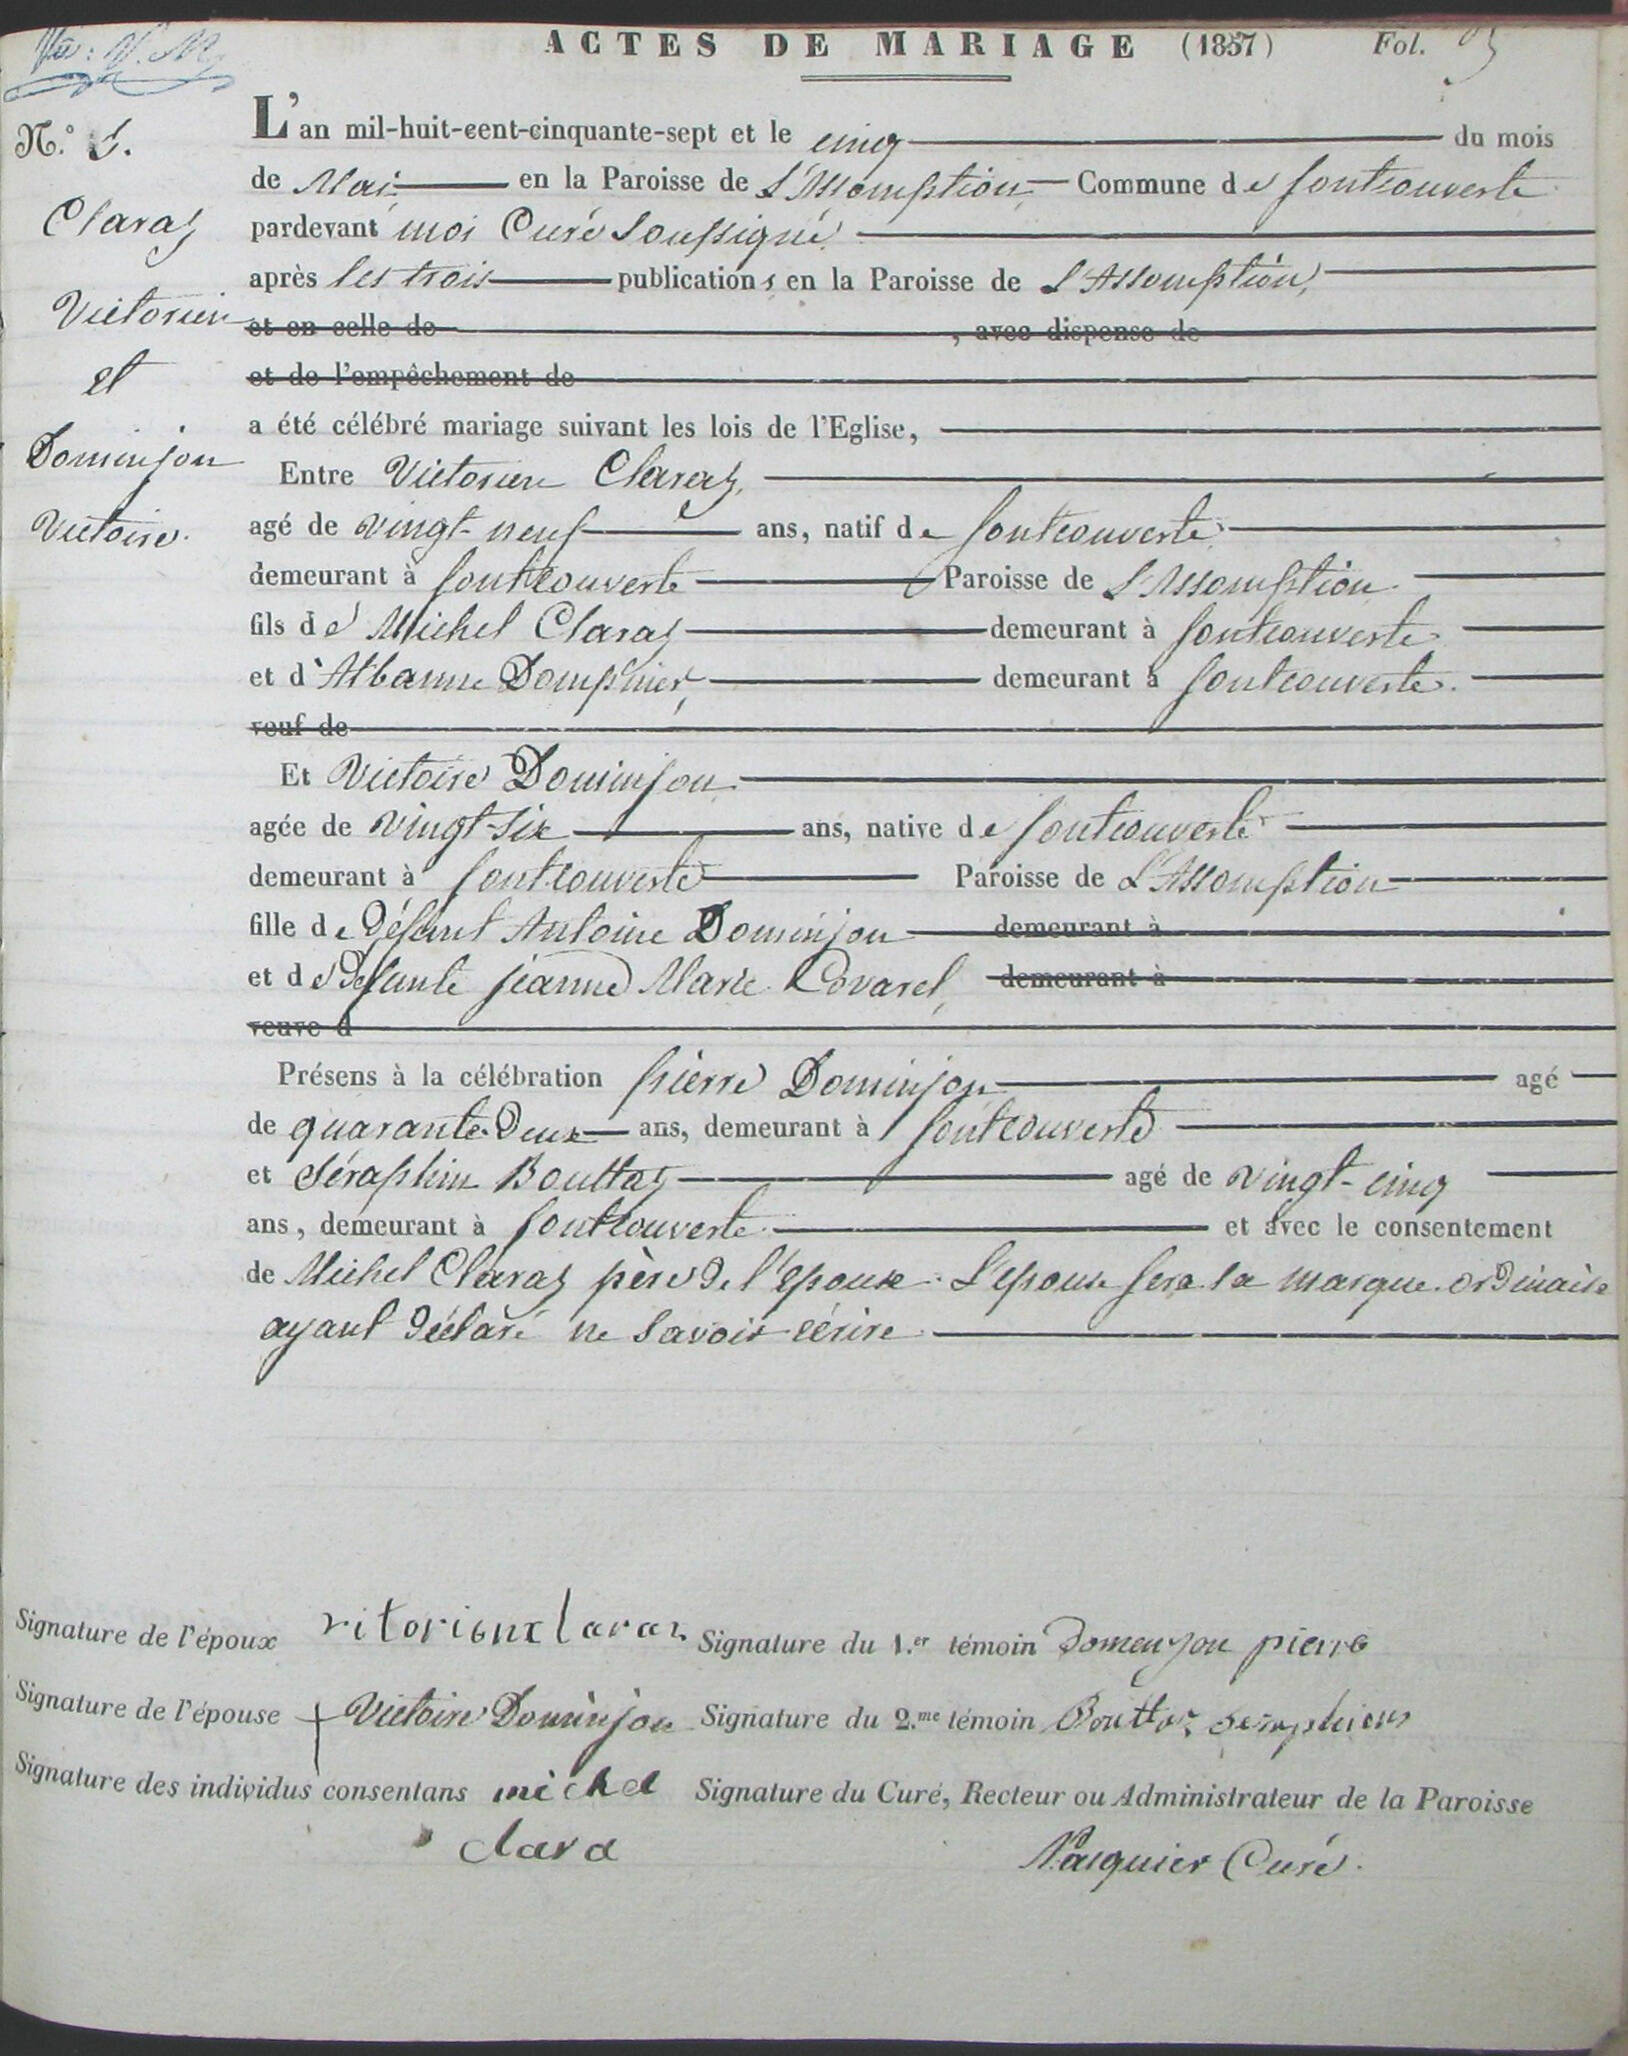 ACTES DE MARIAGE (1857) Fol.
N.º 5.
Claraz
Victorien
et
Dominjon
Victoire.
L'an mil-huit-cent-cinquante-sept et le cinq du mois
de Mai, en la Paroisse de L'Assomption, Commune de fontcouverte
pardevant moi Curé soussigné
après les trois publications en la Paroisse de L'Assomption,
et en celle de , avec dispense de
et de l'empêchement de
a été célébré mariage suivant les lois de l'Eglise,
Entre Victorien Claraz,
agé de vingt-neuf ans, natif de fontcouverte
demeurant à fontcouverte Paroisse de L'Assomption
fils de Michel Claraz demeurant à fontcouverte
et d'Albanne Dompnier, demeurant à fontcouverte.
veuf de
Et Victoire Dominjon
agée de vingt-six ans, native de fontcouverte
demeurant à fontcouverte Paroisse de L'Assomption
fille de Défunt Antoine Dominjon demeurant à
et de Defunte jeanne Marie Covarel, demeurant à
veuve d
Présens à la célébration pierre Dominjon agé
de quarante-Deux ans, demeurant à fontcouverte
et Séraphin Bouttaz agé de vingt-cinq
ans, demeurant à fontcouverte et avec le consentement
de Michel Claraz père de l'epoux. L'epouse fera sa marque ordinaire
ayant déclaré ne savoir écrire
Signature de l'époux vitorien claraz Signature du 1.er témoin Domenjon pierre
Signature de l'épouse + Victoire Dominjon Signature du 2.me témoin Bouttaz seraphiens
Signature des individus consentans michel Signature du Curé, Recteur ou Administrateur de la Paroisse
clara Pasquier Curé.